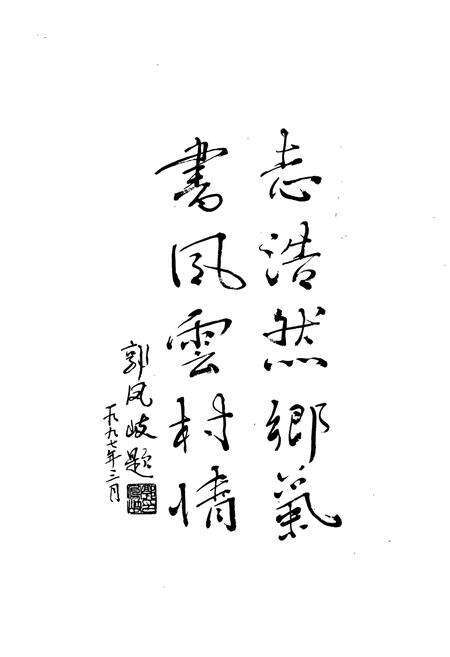 志浩然鄉氣
書風雲村情
郭凤岐题
一九九七年三月